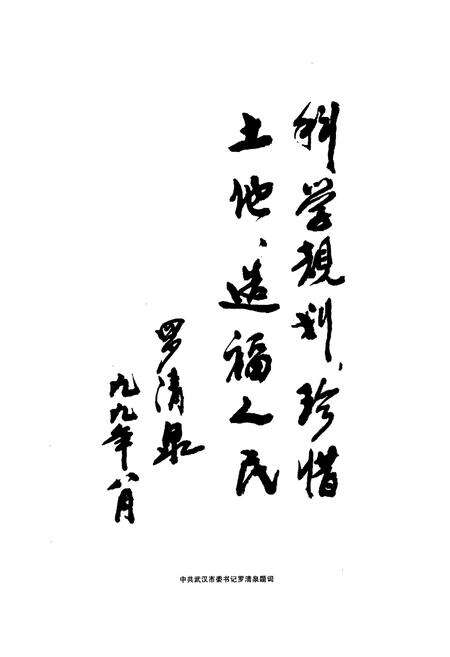 科学规划、珍惜
土地、造福人民
罗清泉
九九年八月
中共武汉市委书记罗清泉题词